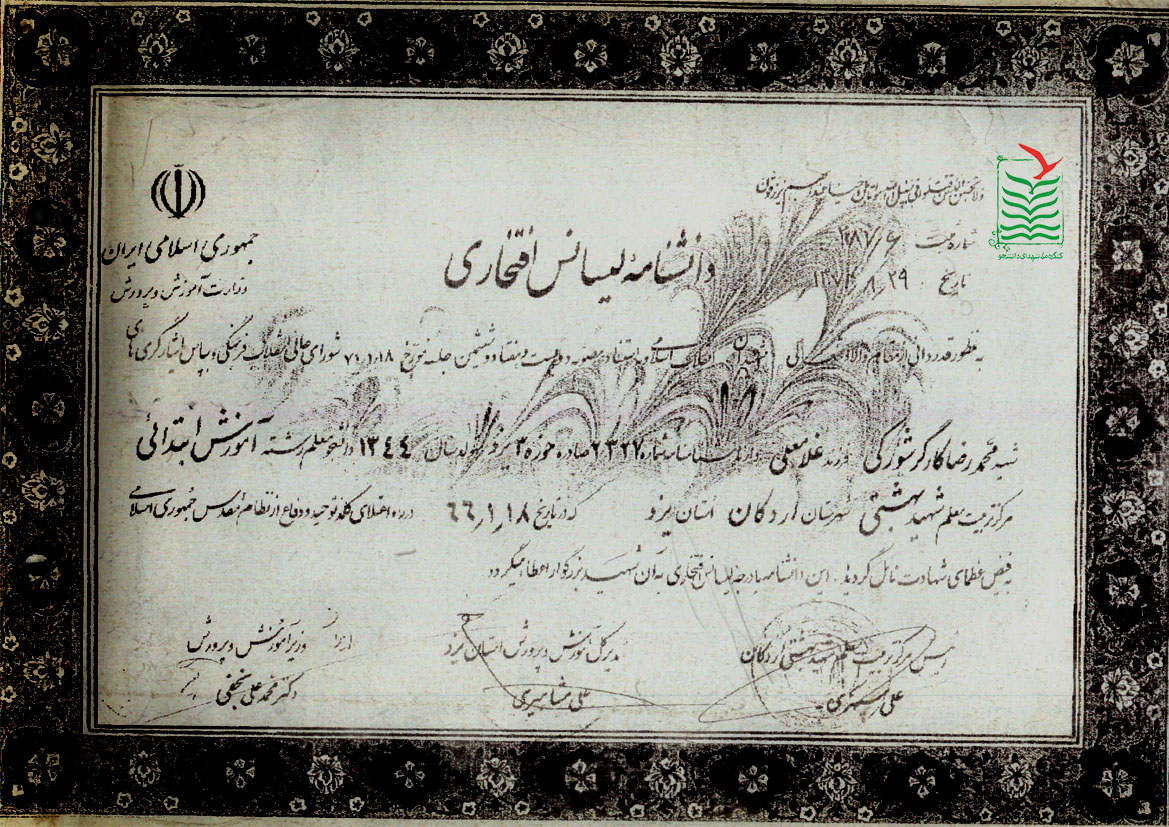 ولا تحسبن الذین قتلوا فی سبیل الله امواتا بل احیاء عند ربهم یرزقون
جمهوری اسلامی ایران
وزارت آموزش و پرورش
شماره ثبت ۲۸۷/۶
تاریخ ۲۹ـ۸ـ
کنگره ملی شهدای دانشجو
دانشنامهٔ لیسانس افتخاری
به منظور قدردانی از مقام والای شهیدان انقلاب اسلامی و به استناد مصوبه دویست و هفتاد و ششمین جلسه مورخ ۷۱/۱/۱۸ شورای عالی انقلاب فرهنگی و بپاس ایثارگری های
شهید محمدرضا کارگر شورکی فرزند غلامعلی دارنده شناسنامه شماره ۶۳۲۷ صادره حوزه ۲ یزد متولد سال ۱۳۴۴ دانشجو معلم رشته آموزش ابتدائی
مرکز تربیت معلم شهید بهشتی شهرستان اردکان استان یزد که در تاریخ ۶۶ـ۱ـ۱۸ در راه اعتلای کلمه توحید و دفاع از نظام مقدس جمهوری اسلامی
به فیض عظمای شهادت نائل گردید. این دانشنامه با درجه لیسانس افتخاری به آن شهید بزرگوار اعطا میگردد
رئیس مرکز تربیت معلم شهید بهشتی اردکان
مدیرکل آموزش و پرورش استان یزد
وزیر آموزش و پرورش
علی
علی
دکتر محمد علی نجفی